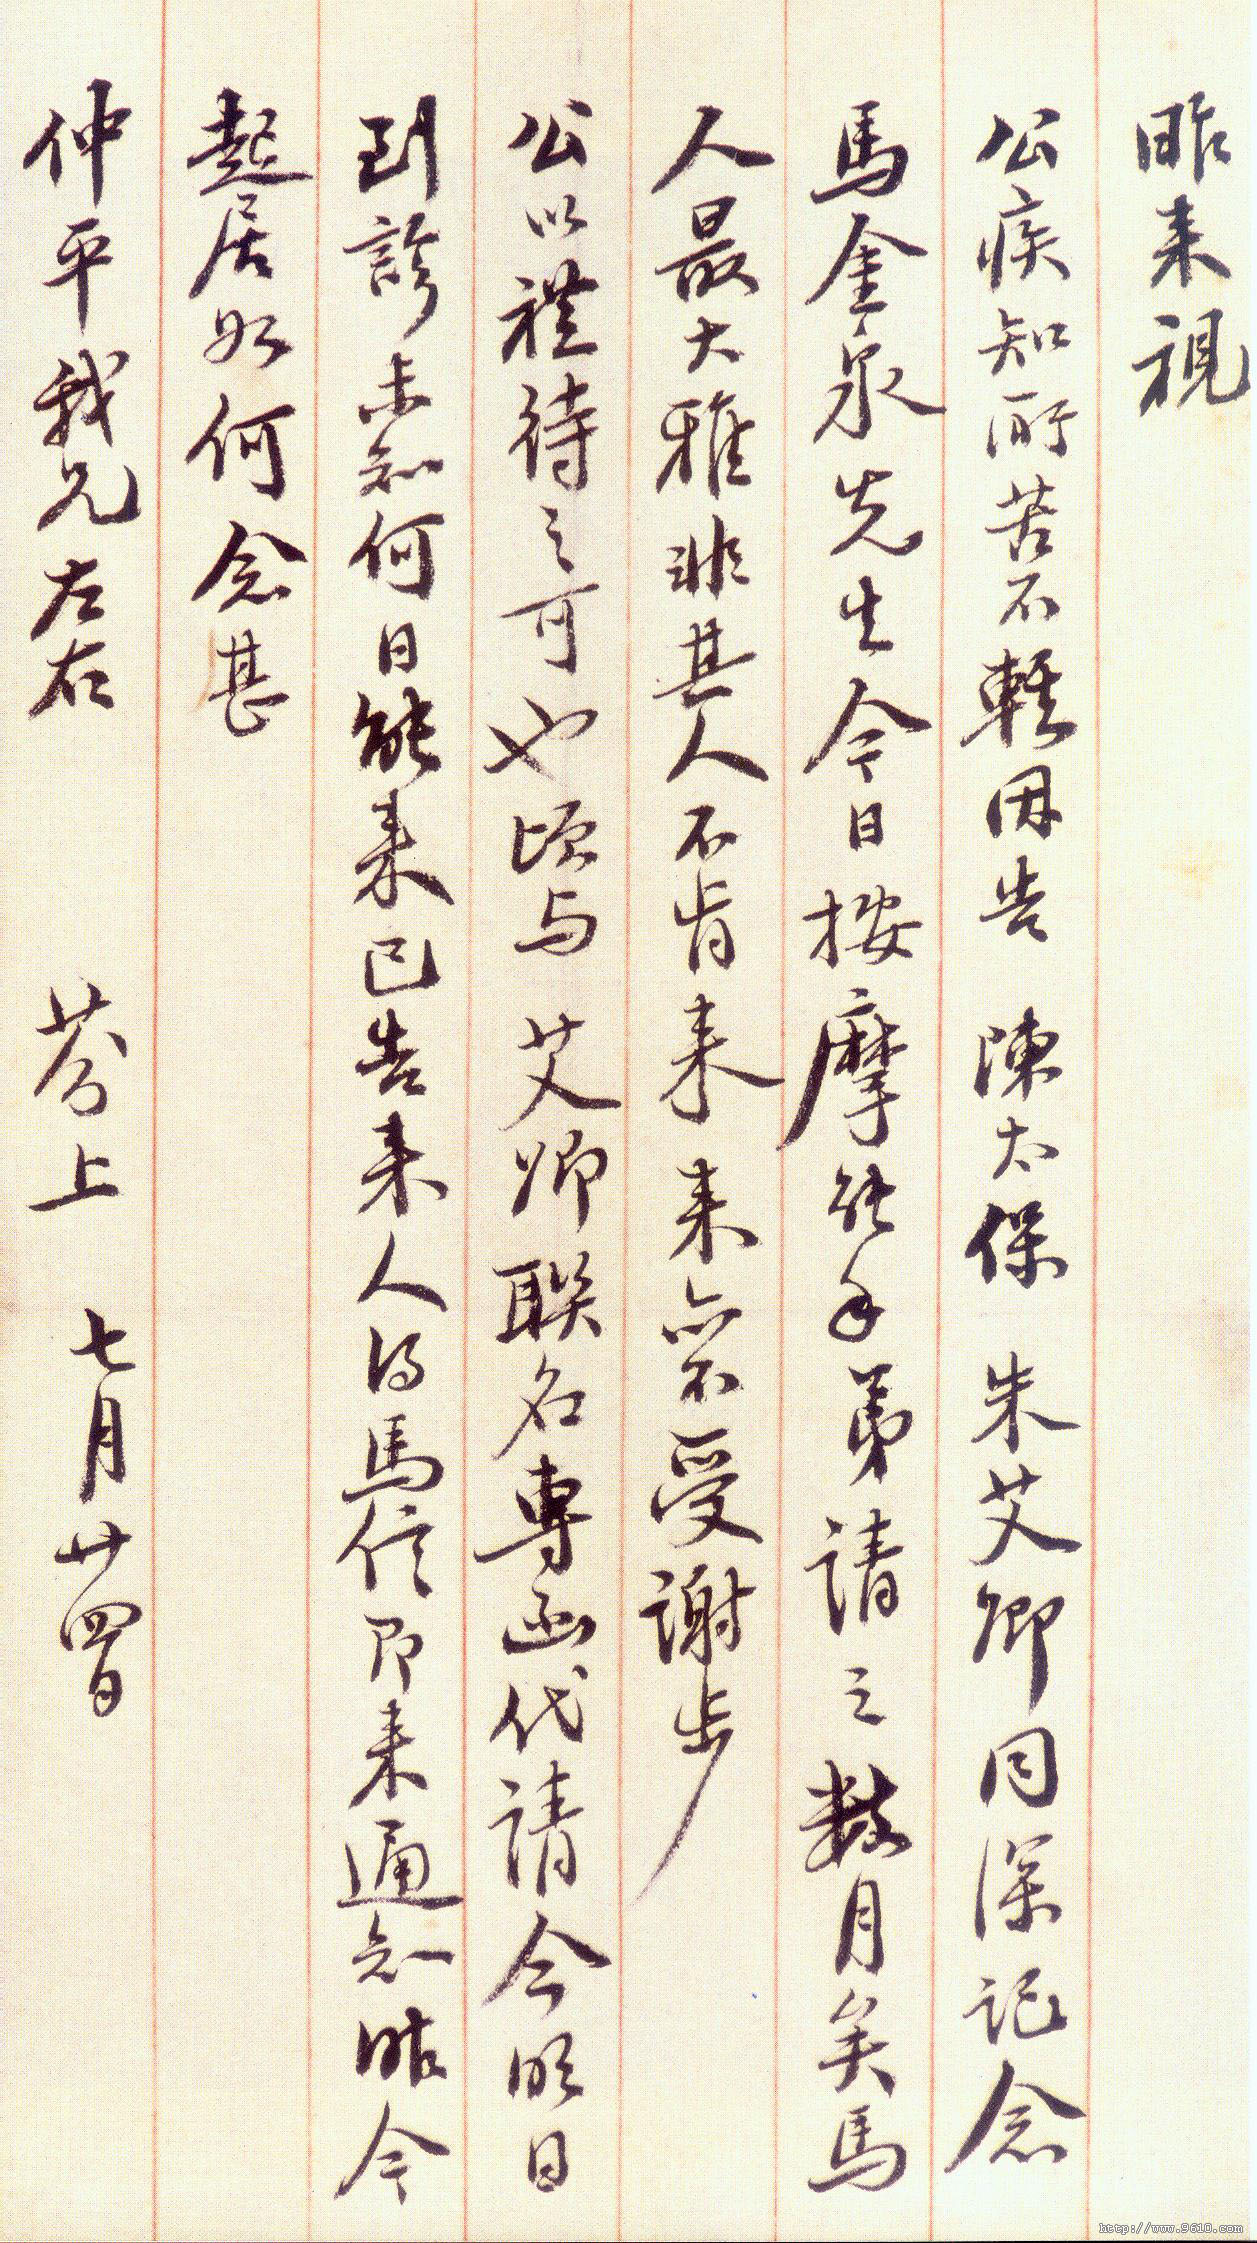 昨来視
公疾知所苦不輕因告陳太保朱艾卿同深記念
馬金泉先生今日按摩能手弟請之數月矣馬
人最大雅非其人不肯来来亦不受謝步
公以禮待之可也頃与艾卿聯名專函代請今明日
到診未知何日能来已告来人得馬信即来通知昨今
起居如何念甚
仲平我兄左右 芬上 七月廿四日
http://www.9610.com